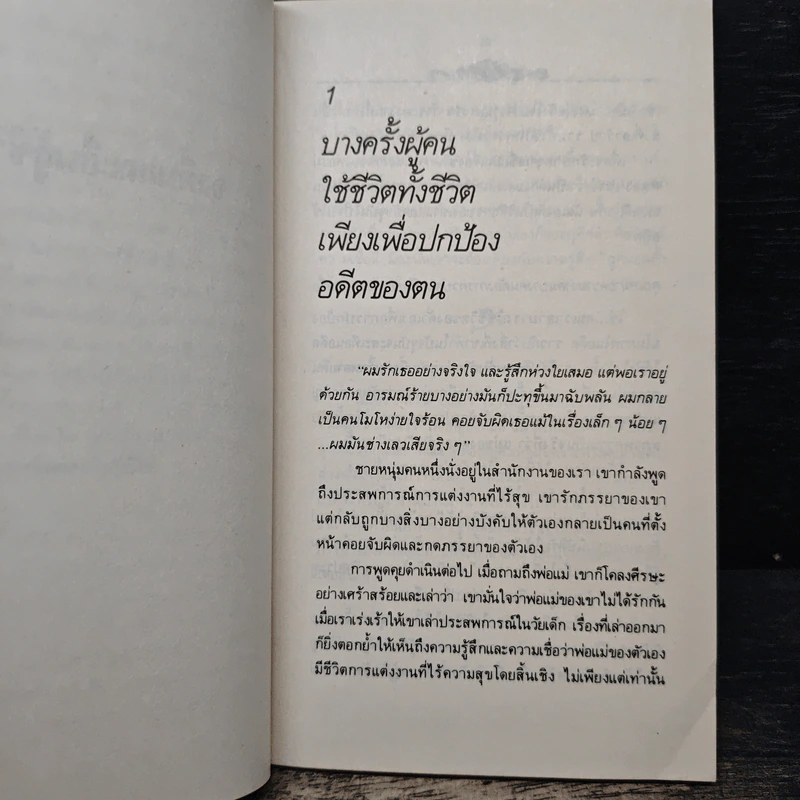 1
บางครั้งผู้คน
ใช้ชีวิตทั้งชีวิต
เพียงเพื่อปกป้อง
อดีตของตน
“ผมรักเธออย่างจริงใจ และรู้สึกห่วงใยเสมอ แต่พอเราอยู่
ด้วยกัน อารมณ์ร้ายบางอย่างมันก็ปะทุขึ้นมาฉับพลัน ผมกลาย
เป็นคนโมโหง่ายใจร้อน คอยจับผิดเธอแม้ในเรื่องเล็ก ๆ น้อย ๆ
...ผมมันช่างเลวเสียจริง ๆ”
ชายหนุ่มคนหนึ่งนั่งอยู่ในสำนักงานของเรา เขากำลังพูด
ถึงประสพการณ์การแต่งงานที่ไร้สุข เขารักภรรยาของเขา
แต่กลับถูกบางสิ่งบางอย่างบังคับให้ตัวเองกลายเป็นคนที่ตั้ง
หน้าคอยจับผิดและกดภรรยาของตัวเอง
การพูดคุยดำเนินต่อไป เมื่อถามถึงพ่อแม่ เขาก็โคลงศีรษะ
อย่างเศร้าสร้อยและเล่าว่า เขามั่นใจว่าพ่อแม่ของเขาไม่ได้รักกัน
เมื่อเราเร่งเร้าให้เขาเล่าประสพการณ์ในวัยเด็ก เรื่องที่เล่าออกมา
ก็ยิ่งตอกย้ำให้เห็นถึงความรู้สึกและความเชื่อว่าพ่อแม่ของตัวเอง
มีชีวิตการแต่งงานที่ไร้ความสุขโดยสิ้นเชิง ไม่เพียงแต่เท่านั้น